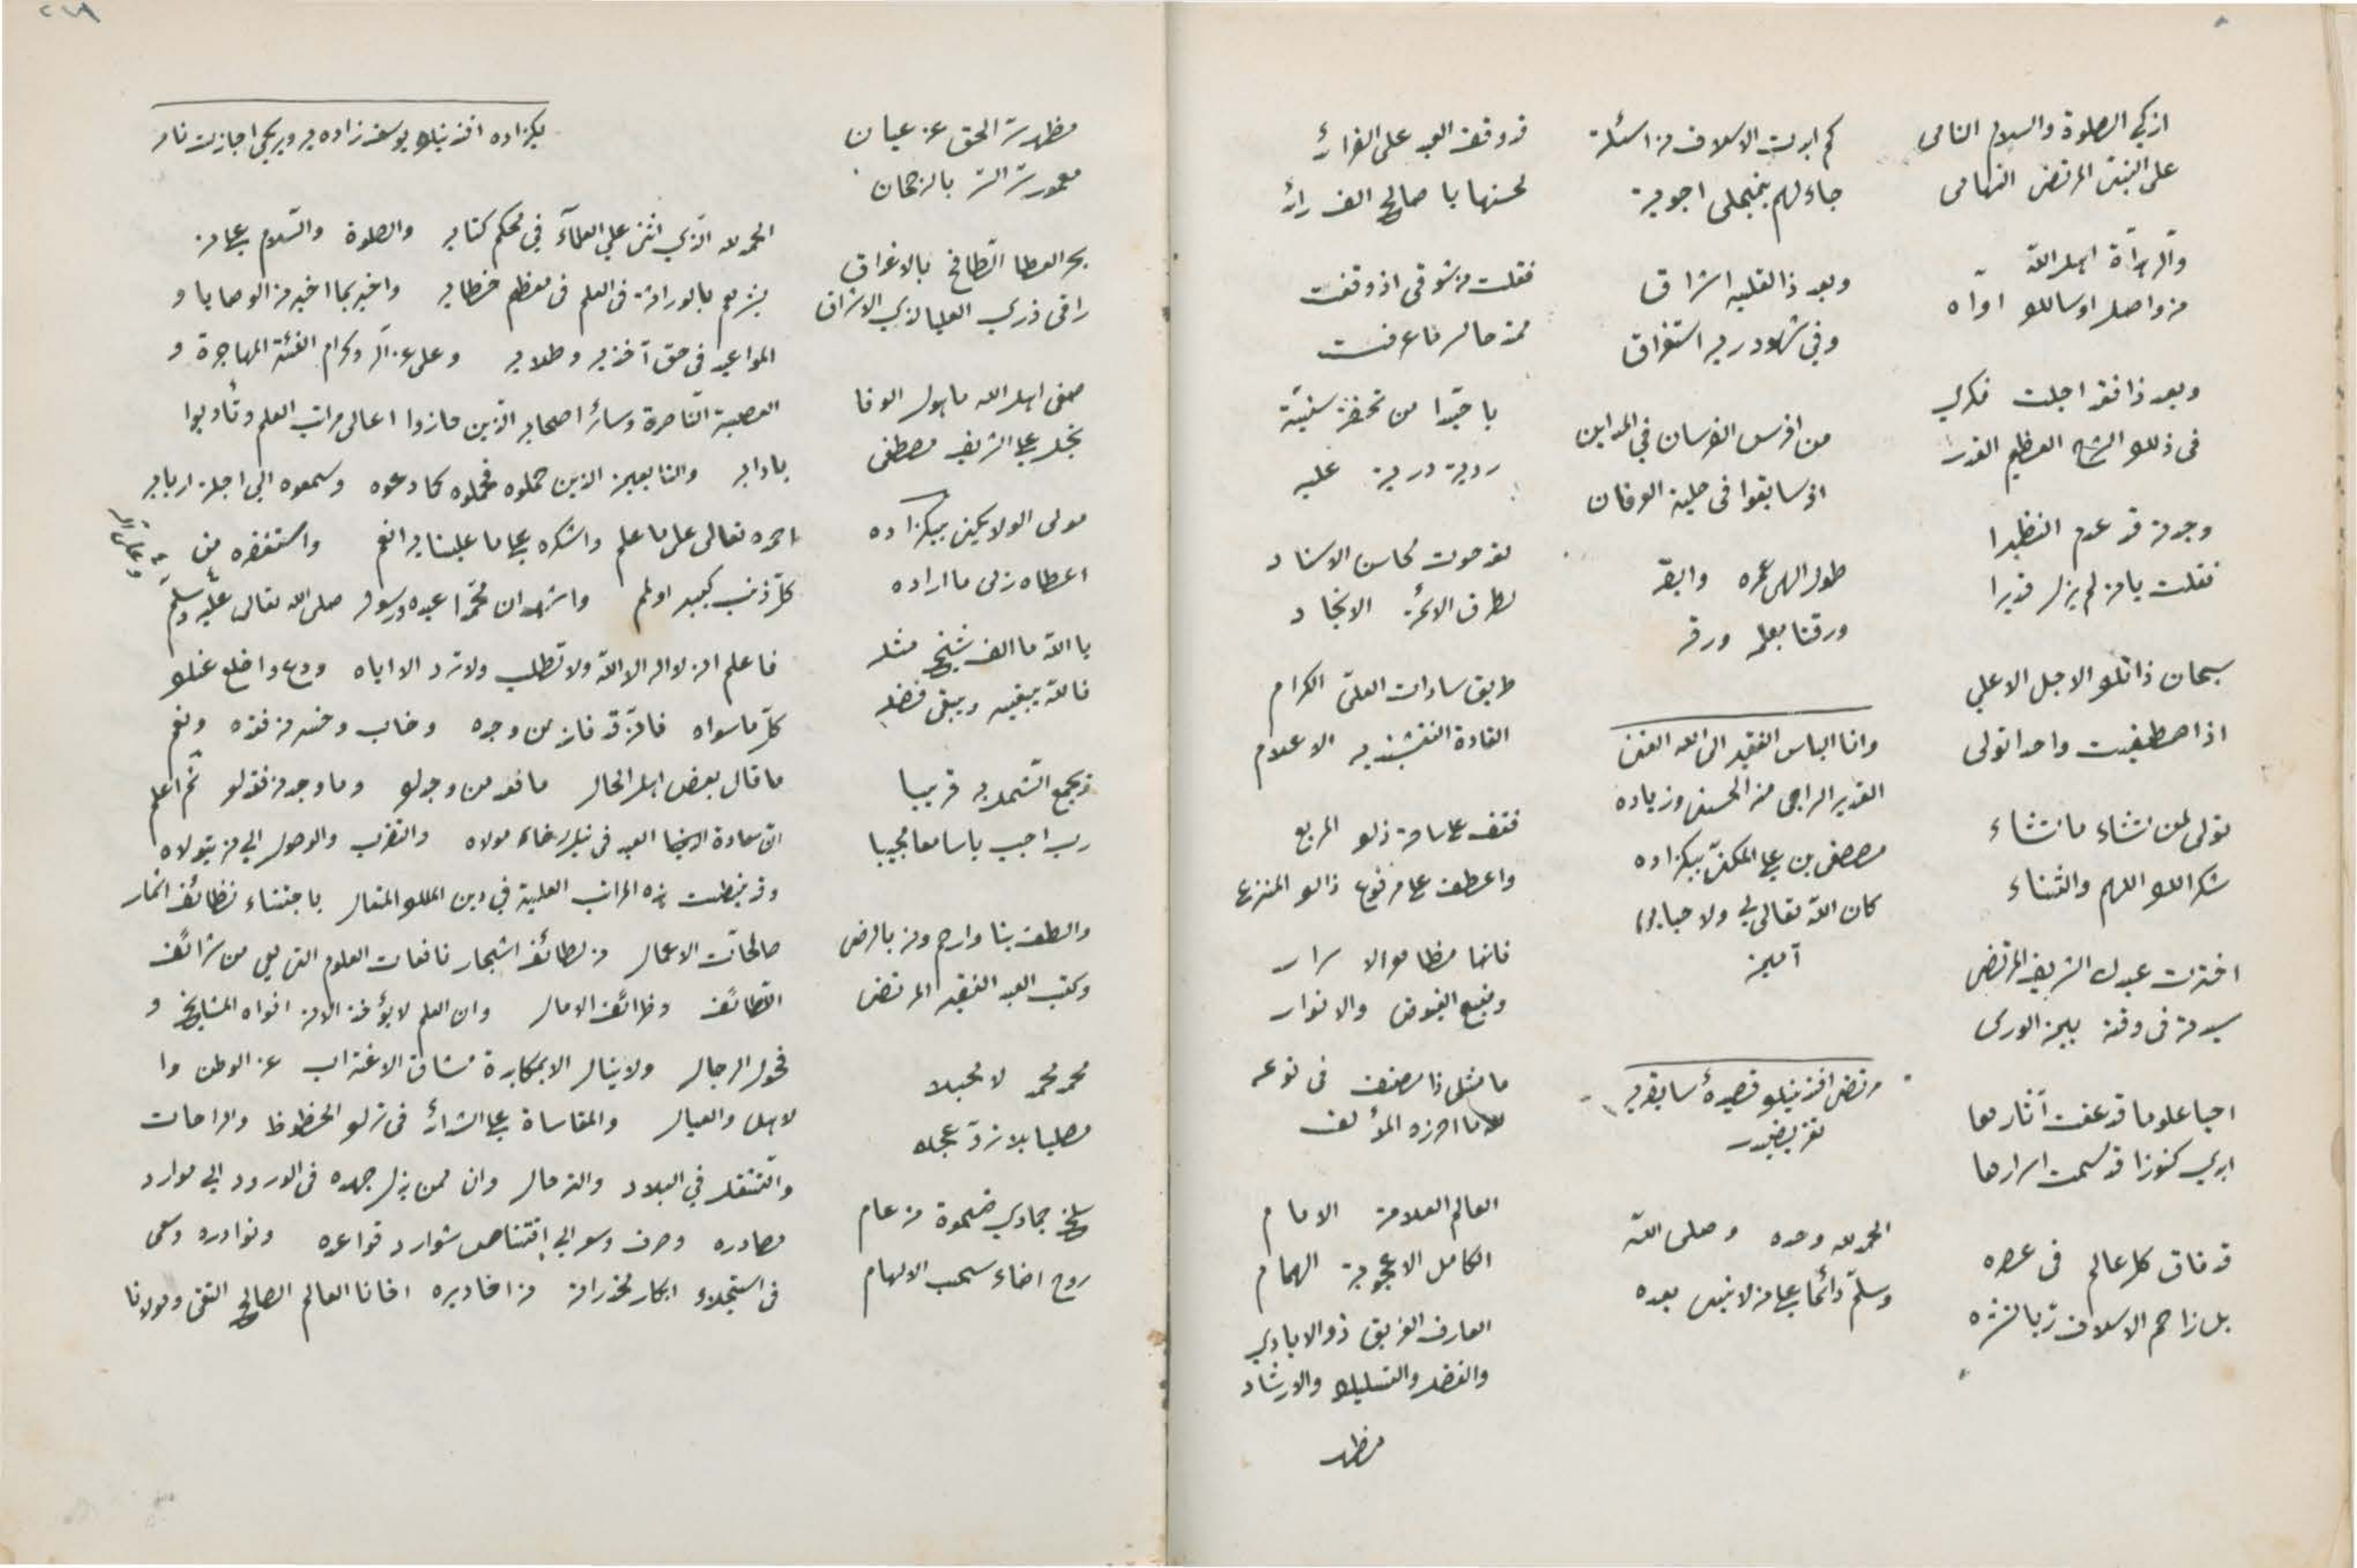 ازكى الصلوة والسلام النامى
على النبى المرتضى التهامى
وآله هداة اهل الله
من واصل اوسالك اواه
وبعد ذا فقد اجلت فكرى
فى ذلك الشرح العظيم القدر
وجدته قد عدم النظيرا
فقلت يا من لم يزل قديرا
سبحان ذاتك الاجل الاعلى
اذا صطفيت واحدا تولى
تولى لمن تشاء ما تشاء
شكرا لك اللهم والثناء
اخترت عبدك الشريف المرتضى
سيدته فى وقته بين الورى
احيا علوما قد عفت آثارها
ابدى كنوزا قد سمت اسرارها
قد فاق كل عالم فى عصره
بل زاحم الاسلاف
كم ابدت الاسلاف من اسئلة
جاء لهم اجوبة
وبعد ذا لقلبه اشراق
وفى شهود ربه استغراق
من افرس الفرسان فى الميادين
اذ سابقوا فى حلبة العرفان
طول الهى عمره وابقه
ورقنا بعلمه ورقه
وانا البائس الفقير الى الله الغنى
القدير الراجى منه الحسنى وزياده
مصطفى بن على المكنى بيكزاده
كان الله تعالى لى ولاحبابى
آمين
مرتضى افندينك قصيدۀ سابقه يه
تقريضيدر
الحمد لله وحده وصلى الله
وسلم دائما على من لا نبى بعده
قد وقف العبد على الفرائد
لحسنها يا صالح الفرائد
فقلت من شوقى اذ وقفت
لما عرفت
يا حبذا من تحفة سنية
درية علية
لقد حوت محاسن الاسناد
لطرق الائمة الانجاد
طريق سادات العلى الكرام
القادة النقشبندية الاعلام
فقف على ساحة ذلك المربع
واعطف على فروع ذلك المنزع
فانها مظاهر الاسرار
ومنبع الفيوض والانوار
ما مثل ذا مصنف فى نوعه
ما احرزه المؤلف
العالم العلامة الامام
الكامل الاعجوبة الهمام
العارف الغريق ذو الايادى
والفضل والتسليك والارشاد
مظهر
مظهر سر الحق عن عيان
معمور سر السر بالرحمان
بحر العطا الطافح بالاغراق
راقى ذرى العليا لذى الاشراق
صفى اهل الله ماهول الوفا
نجل على الشريف مصطفى
مولى الموالى بيكزاده
اعطاه ربى ما اراده
بالله ما الف شيخ مثله
فالله يبقيه ويبقى فضله
ويجمع الشمل به قريبا
رب اجب يا سامعا مجيبا
والطف بنا وارحم ومن بالرضى
وكتب العبد الفقير المرتضى
محمد محمد لا محبلا
مصليا
سلخ جمادى ضحوة من عام
روح اضاء سحب الالهام
بكزاده افندينك يوسف زاده يه ويرديكى اجازت نامه
الحمد لله الذى اثنى على العلماء فى محكم كتابه والصلوة والسلام على من
بشرهم بالوراثة فى العلم فى معظم خطابه واخبر بما اخبر من الوصايا و
المواعيد فى حق آخذيه وطلابه وعلى آله وكرام الفئة المهاجرة و
العصبة الناصرة وسائر اصحابه الذين حازوا اعالى مراتب العلم وتأدبوا
بادابه والتابعين الذين حملوه فحملوه كما وعوه وسمعوه الى اجلة اربابه
احمده تعالى على ما علم واشكره على ما علينا به انعم واستغفره من
كل ذنب كبير اولمم واشهد ان محمدا عبده ورسوله صلى الله تعالى عليه وسلم
فاعلم انه لا اله الا الله ولا تطلب ولا ترد الا اياه ودع واخلع عنك
كل ما سواه فانه قد فاز من وجده وخاب وخسر من فقده ونعم
ما قال بعض اهل الحال ما فقد من وجدك وما وجد من فقدك ثم اعلم
ان سعادة العبد فى نيل رضاء مولاه والتقرب والوصول الى من يتولاه
وقد نيطت هذه المراتب العلية فى دين الملك المتعال باجتناء اثمار
صالحات الاعمال من لطائف اشجار نافعات العلوم التى هى من شرائف
اللطائف وظرائف الامال وان العلم لا يؤخذ الا من افواه المشايخ و
فحول الرجال ولا ينال الا بمكابدة مشاق الاغتراب عن الوطن وا
لاهل والعيال والمقاساة على الشدائد فى ترك الحظوظ والراحات
والتنقل فى البلاد والترحال وان ممن بذل جهده فى الورود الى موارد
مصادره وصرف وسعه الى اقتناص شوارد قواعده ونوادره وسعى
فى استجلاء ابكار مخدراته من اخاديره اخانا العالم الصالح التقى ومولانا